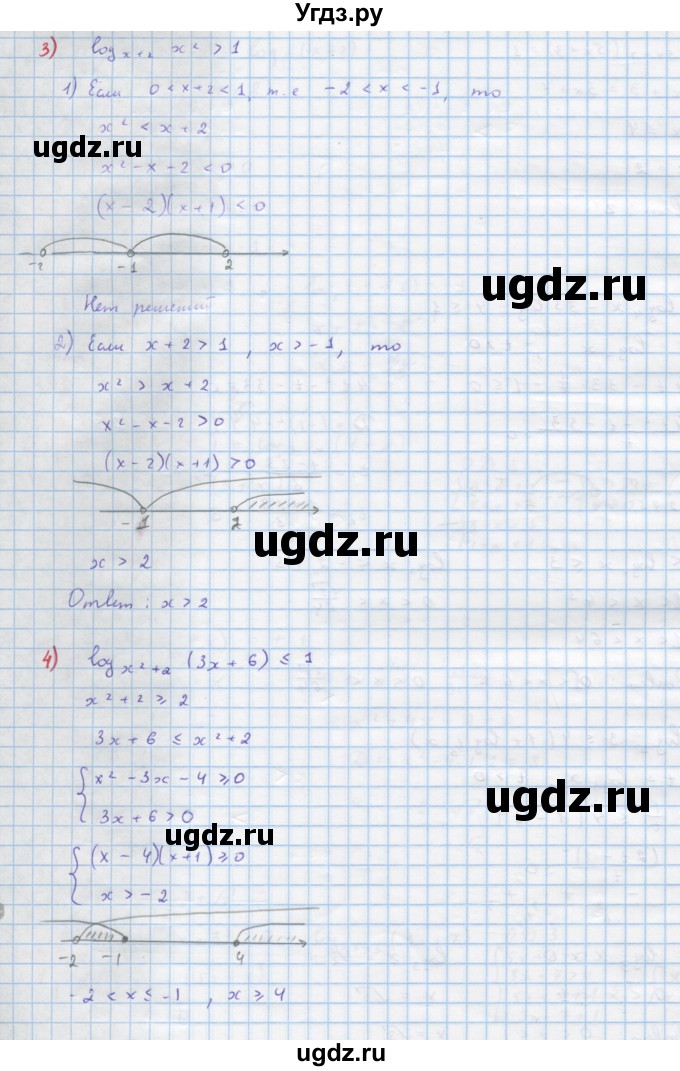 Угдз.ру
3) log x+2 x² > 1
1) Если 0 < x + 2 < 1, т.е -2 < x < -1, то
x² < x + 2
ugdz.ru
x² - x - 2 < 0
(x - 2)(x + 1) < 0
-2 -1 2
ugdz.ru
Нет решений
2) Если x + 2 > 1, x > -1, то
x² > x + 2
x² - x - 2 > 0
(x - 2)(x + 1) > 0
-1 2
ugdz.ru
x > 2
Ответ: x > 2
4) log x²+2 (3x + 6) ≤ 1
x² + 2 ≥ 2
3x + 6 ≤ x² + 2
{ x² - 3x - 4 ≥ 0
ugdz.ru
3x + 6 > 0
ugdz.ru
{ (x - 4)(x + 1) ≥ 0
x > -2
-2 -1 4
-2 < x ≤ -1, x ≥ 4
ugdz.ru